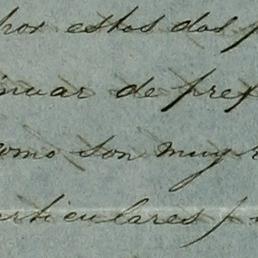 por estos dos p
inuar de pref
como son muy
articulares p